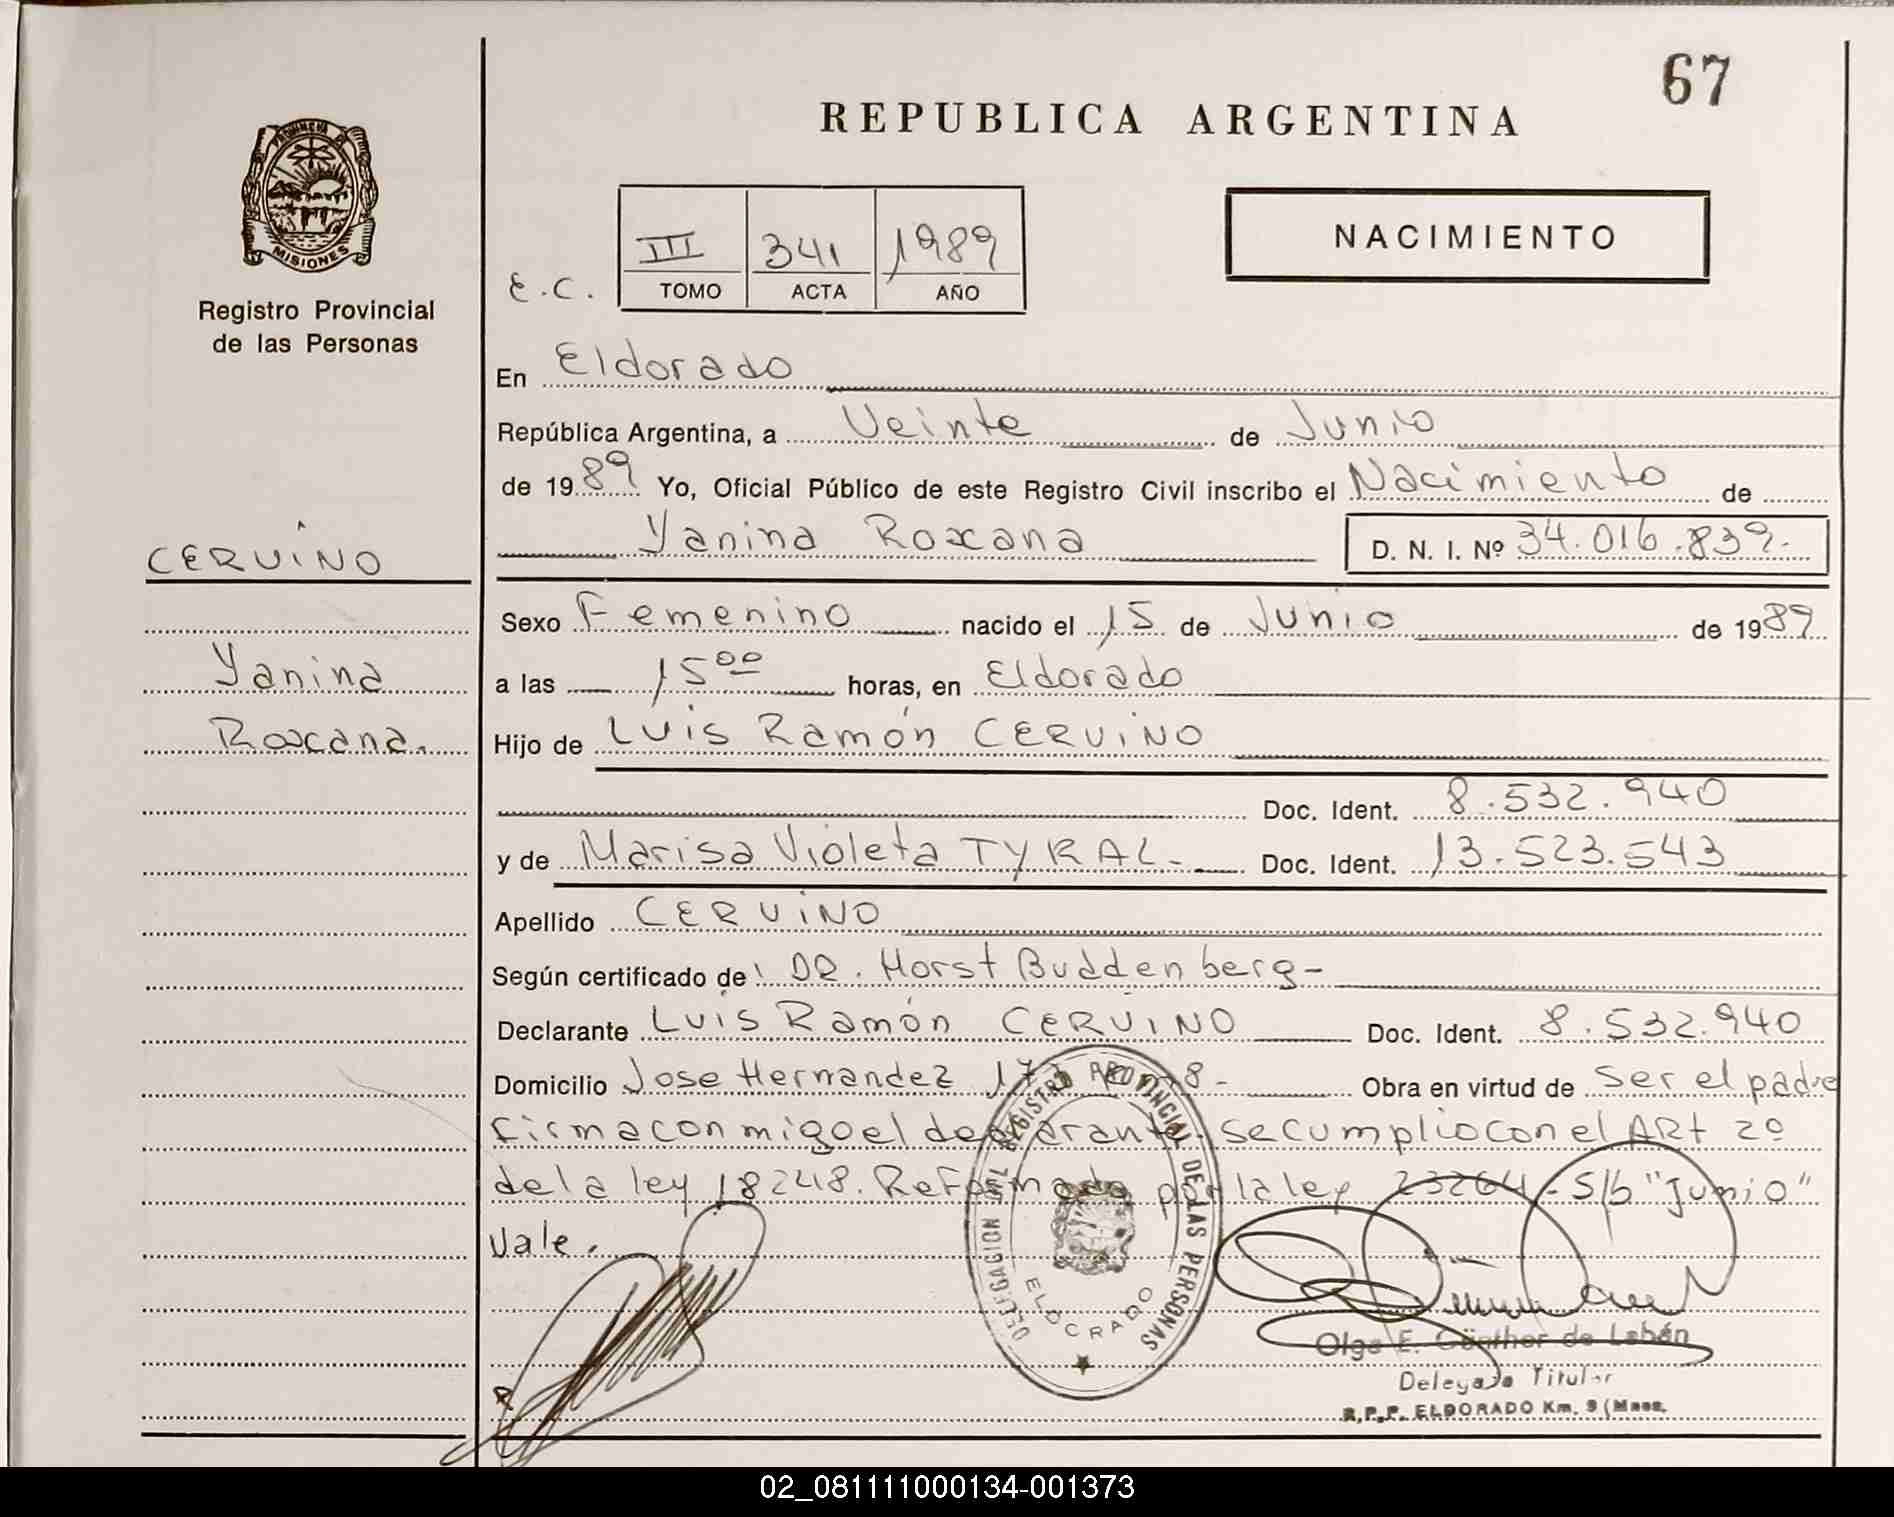 67
REPUBLICA ARGENTINA
PROVINCIA DE
MISIONES
Registro Provincial
de las Personas
NACIMIENTO
E.C.
III 341 1989
TOMO ACTA AÑO
En Eldorado
República Argentina, a Veinte de Junio
de 1989 Yo, Oficial Público de este Registro Civil inscribo el Nacimiento de
Yanina Roxana D. N. I. Nº 34.016.839.-
CERVIÑO
Yanina
Roxana.
Sexo Femenino nacido el 15 de Junio de 1989
a las 15⁰⁰ horas, en Eldorado
Hijo de Luis Ramón CERVIÑO
Doc. Ident. 8.532.940
y de Marisa Violeta TYKAL.- Doc. Ident. 13.523.543
Apellido CERVIÑO
Según certificado de: DR. Horst Buddenberg-
Declarante Luis Ramón CERVIÑO Doc. Ident. 8.532.940
Domicilio Jose Hernandez Km 8- Obra en virtud de ser el padre
firma conmigo el declarante. se cumplio con el ART 2º
de la ley 18248. Reformada por la ley 23264- S/b "Junio"
Vale.
DELEGACION DEL REGISTRO PROVINCIAL DE LAS PERSONAS
ELDORADO
Olga E. Günther de Labán
Delegada Titular
R.P.P. ELDORADO Km. 9 (Mnes.
02_081111000134-001373